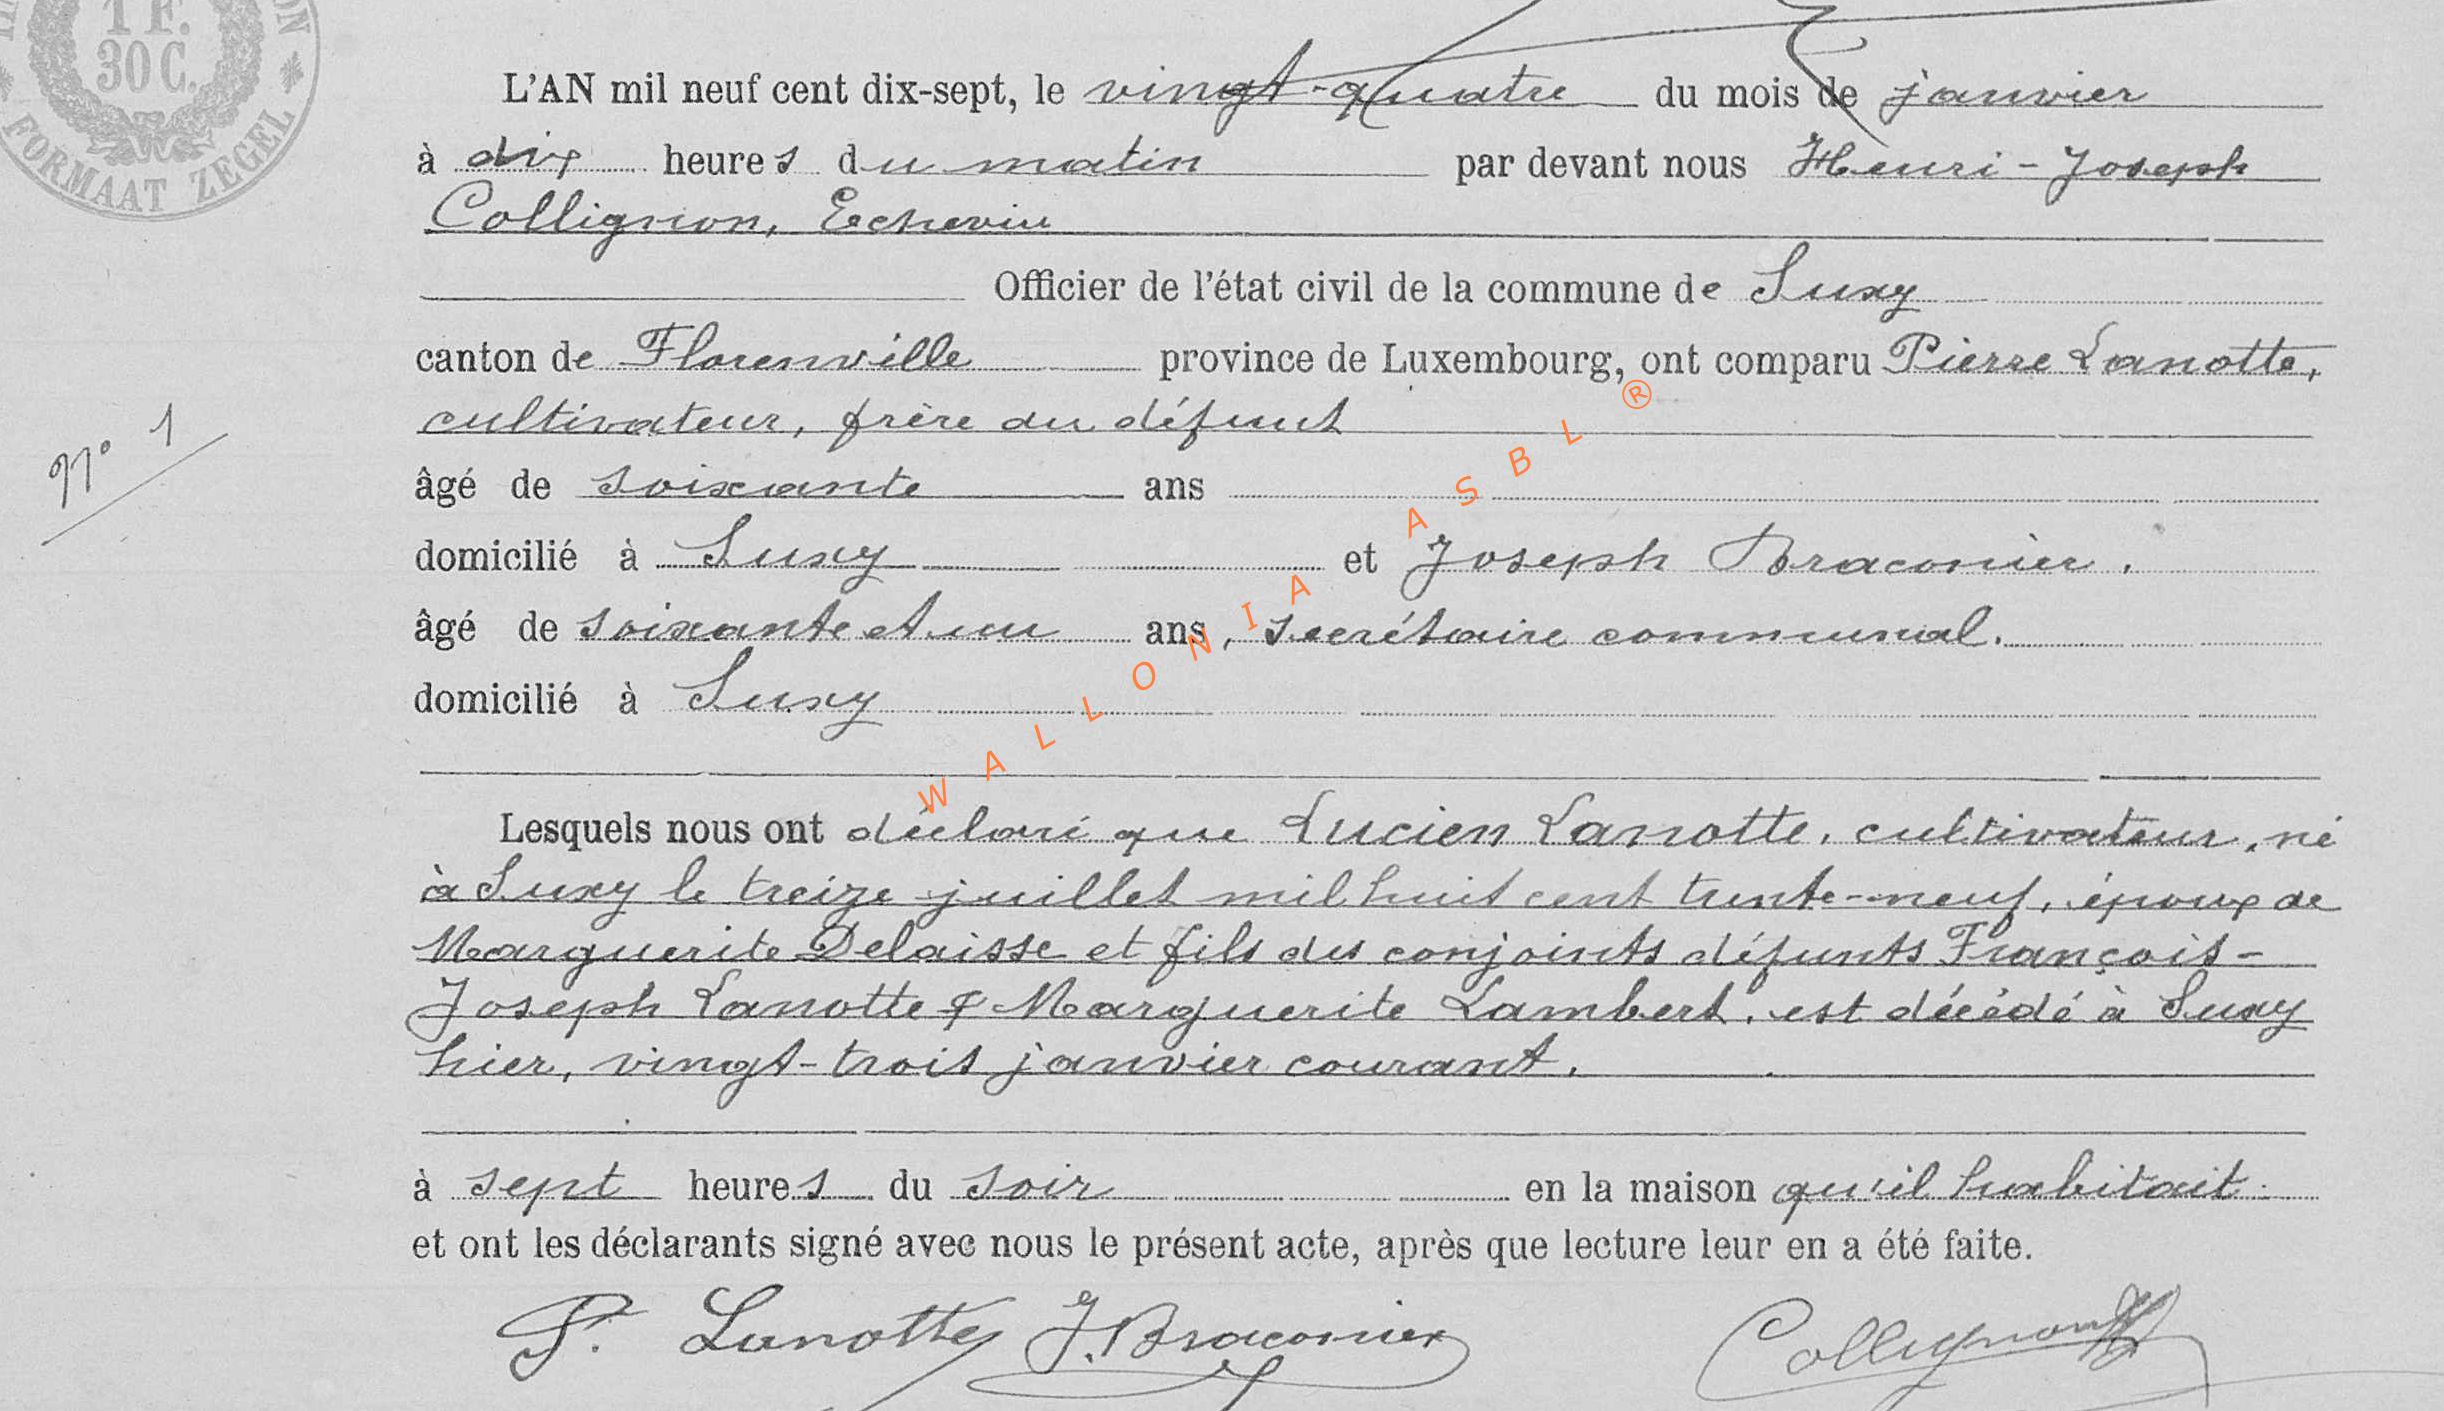 1 F.
30 C.
FORMAAT ZEGEL
L'AN mil neuf cent dix-sept, le vingt-quatre du mois de janvier
à dix heures du matin par devant nous Henri-Joseph
Collignon, Echevin
Officier de l'état civil de la commune de Suxy
canton de Florenville province de Luxembourg, ont comparu Pierre Lanotte,
cultivateur, frère du défunt
N° 1
âgé de soixante ans
domicilié à Suxy et Joseph Braconier,
âgé de soixante et un ans, secrétaire communal.
domicilié à Suxy
WALLONIA ASBL ®
Lesquels nous ont déclaré que Lucien Lanotte, cultivateur, né
à Suxy le treize juillet mil huit cent trente-neuf, époux de
Marguerite Delaisse et fils des conjoints défunts François-
Joseph Lanotte & Marguerite Lambert, est décédé à Suxy
hier, vingt-trois janvier courant.
à sept heures du soir en la maison qu'il habitait
et ont les déclarants signé avec nous le présent acte, après que lecture leur en a été faite.
P. Lanotte J. Braconier Collignon